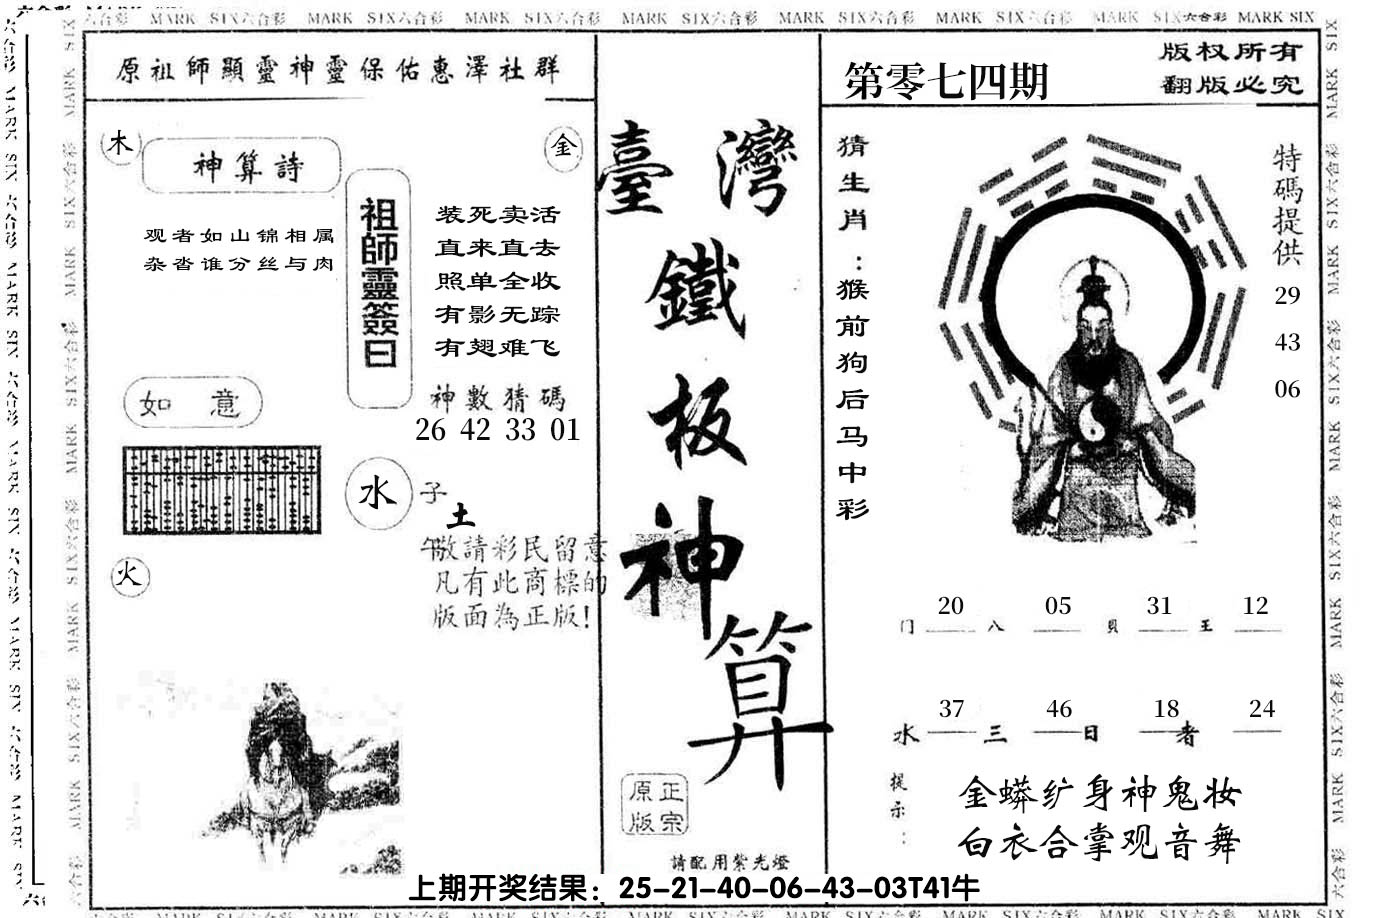 MARK SIX六合彩 MARK SIX六合彩 MARK SIX六合彩 MARK SIX六合彩 MARK SIX六合彩 MARK SIX六合彩 MARK SIX六合彩 MARK SIX
原祖師顯靈神靈保佑惠澤社群
木
金
神算詩
观者如山锦相属
杂沓谁分丝与肉
祖師靈簽曰
装死卖活
直来直去
照单全收
有影无踪
有翅难飞
神數猜碼
26 42 33 01
如意
水
子
土
午
火
敬請彩民留意
凡有此商標的
版面為正版!
臺灣
鐵
板
神
算
正宗
原版
請配用紫光燈
第零七四期
版权所有
翻版必究
猜生肖：猴前狗后马中彩
特碼提供
29
43
06
20 05 31 12
门 八 贝 王
37 46 18 24
水 三 日 者
提示：
金蟒纩身神鬼妆
白衣合掌观音舞
上期开奖结果：25-21-40-06-43-03T41牛